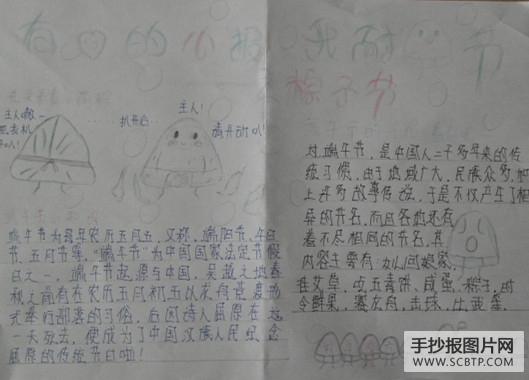 有心的小报
我耐 节
粽子节
主人
扒开后
主人!
请开动叭!
端午节为每年农历五月五,又称,端阳节、午日
节、五月节等,"端午节"为中国国家法定节假
日之一,端午节起源与中国,吴越之地春
秋之前有在农历五月初五以
式举行部落的习俗,后因诗人屈原在这
一天死去,便成为了中国汉族人民纪念
屈原的传统节日啦!
对,端午节,是中国人二千多年来的传
统习惯,由于地域广大,民族众多,加
上许多故事传说,于是不仅产生了相
异的节名,而且各地还有
着不尽相同的节名,其
内容主要有:如:回娘家,
挂艾草,咸蛋,粽子,时
令鲜果,赛龙舟,击球,比
手抄报图片网
WWW.SCBTP.COM